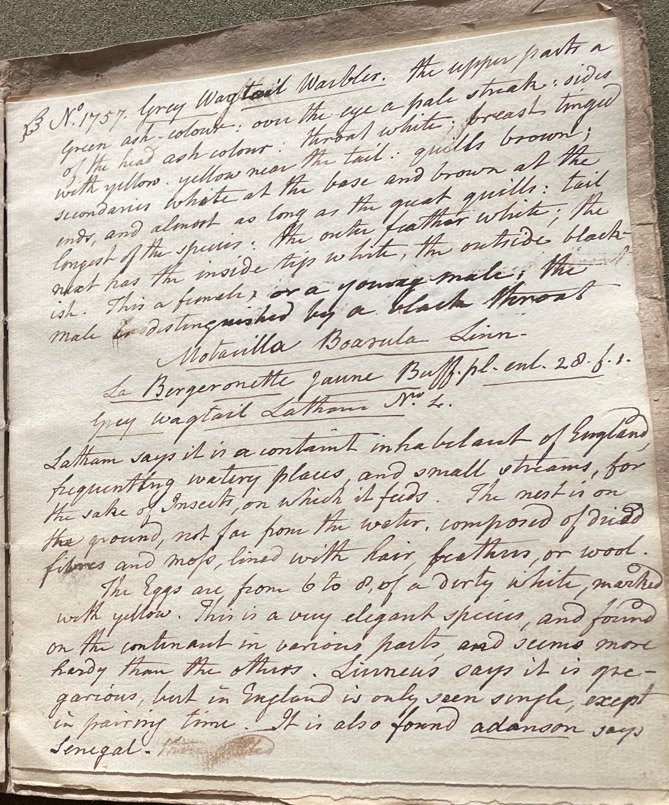 B No. 1757. Grey Wagtail Warbler. the upper parts a
Green ash-colour: over the eye a pale streak: sides
of the head ash colour: throat white: breast tinged
with yellow. yellow near the tail: quills brown;
secondaries white at the base and brown at the
ends, and almost as long as the great quills: tail
longest of the species: the outer feather white; the
next has the inside tips white, the outside black-
ish. This a female, or a young male; the
male distinguished by a black throat
Motacilla Boarula Linn.
La Bergeronette Jaune Buff. pl. enl. 28. f. 1.
Grey wagtail Latham No. 4.
Latham says it is a containt inhabetant of England,
frequenting watery places, and small streams, for
the sake of Insects, on which it feeds. The nest is on
the ground, not far from the water, composed of dried
fibres and moss, lined with hair, feathers, or wool.
The Eggs are from 6 to 8, of a dirty white, marked
with yellow. This is a very elegant species, and found
on the continant in various parts, and seems more
hardy than the others. Linneus says it is gre-
garious, but in England is only seen single, exept
in pairing time. It is also found adanson says
Senegal.